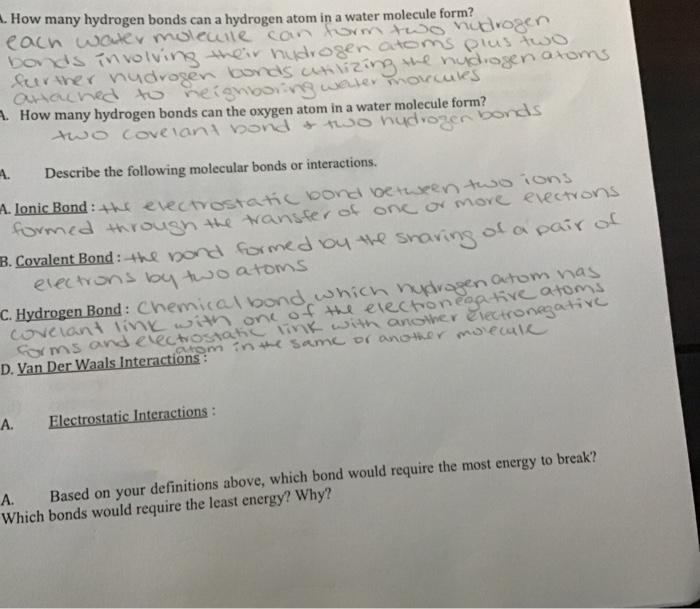 . How many hydrogen bonds can a hydrogen atom in a water molecule form?
each water molecule can form two hydrogen
bonds involving their hydrogen atoms plus two
further hydrogen bonds utilizing the hydrogen atoms
attached to neighboring water molecules
A. How many hydrogen bonds can the oxygen atom in a water molecule form?
two covelant bond & two hydrogen bonds
A. Describe the following molecular bonds or interactions.
A. Ionic Bond : the electrostatic bond between two ions
formed through the transfer of one or more electrons
B. Covalent Bond : the bond formed by the sharing of a pair of
electrons by two atoms
C. Hydrogen Bond : Chemical bond, which hydrogen atom has
covelant link with one of the electronegative atoms
forms and electrostatic link with another electronegative
atom in the same or another molecule
D. Van Der Waals Interactions :
A. Electrostatic Interactions :
A. Based on your definitions above, which bond would require the most energy to break?
Which bonds would require the least energy? Why?